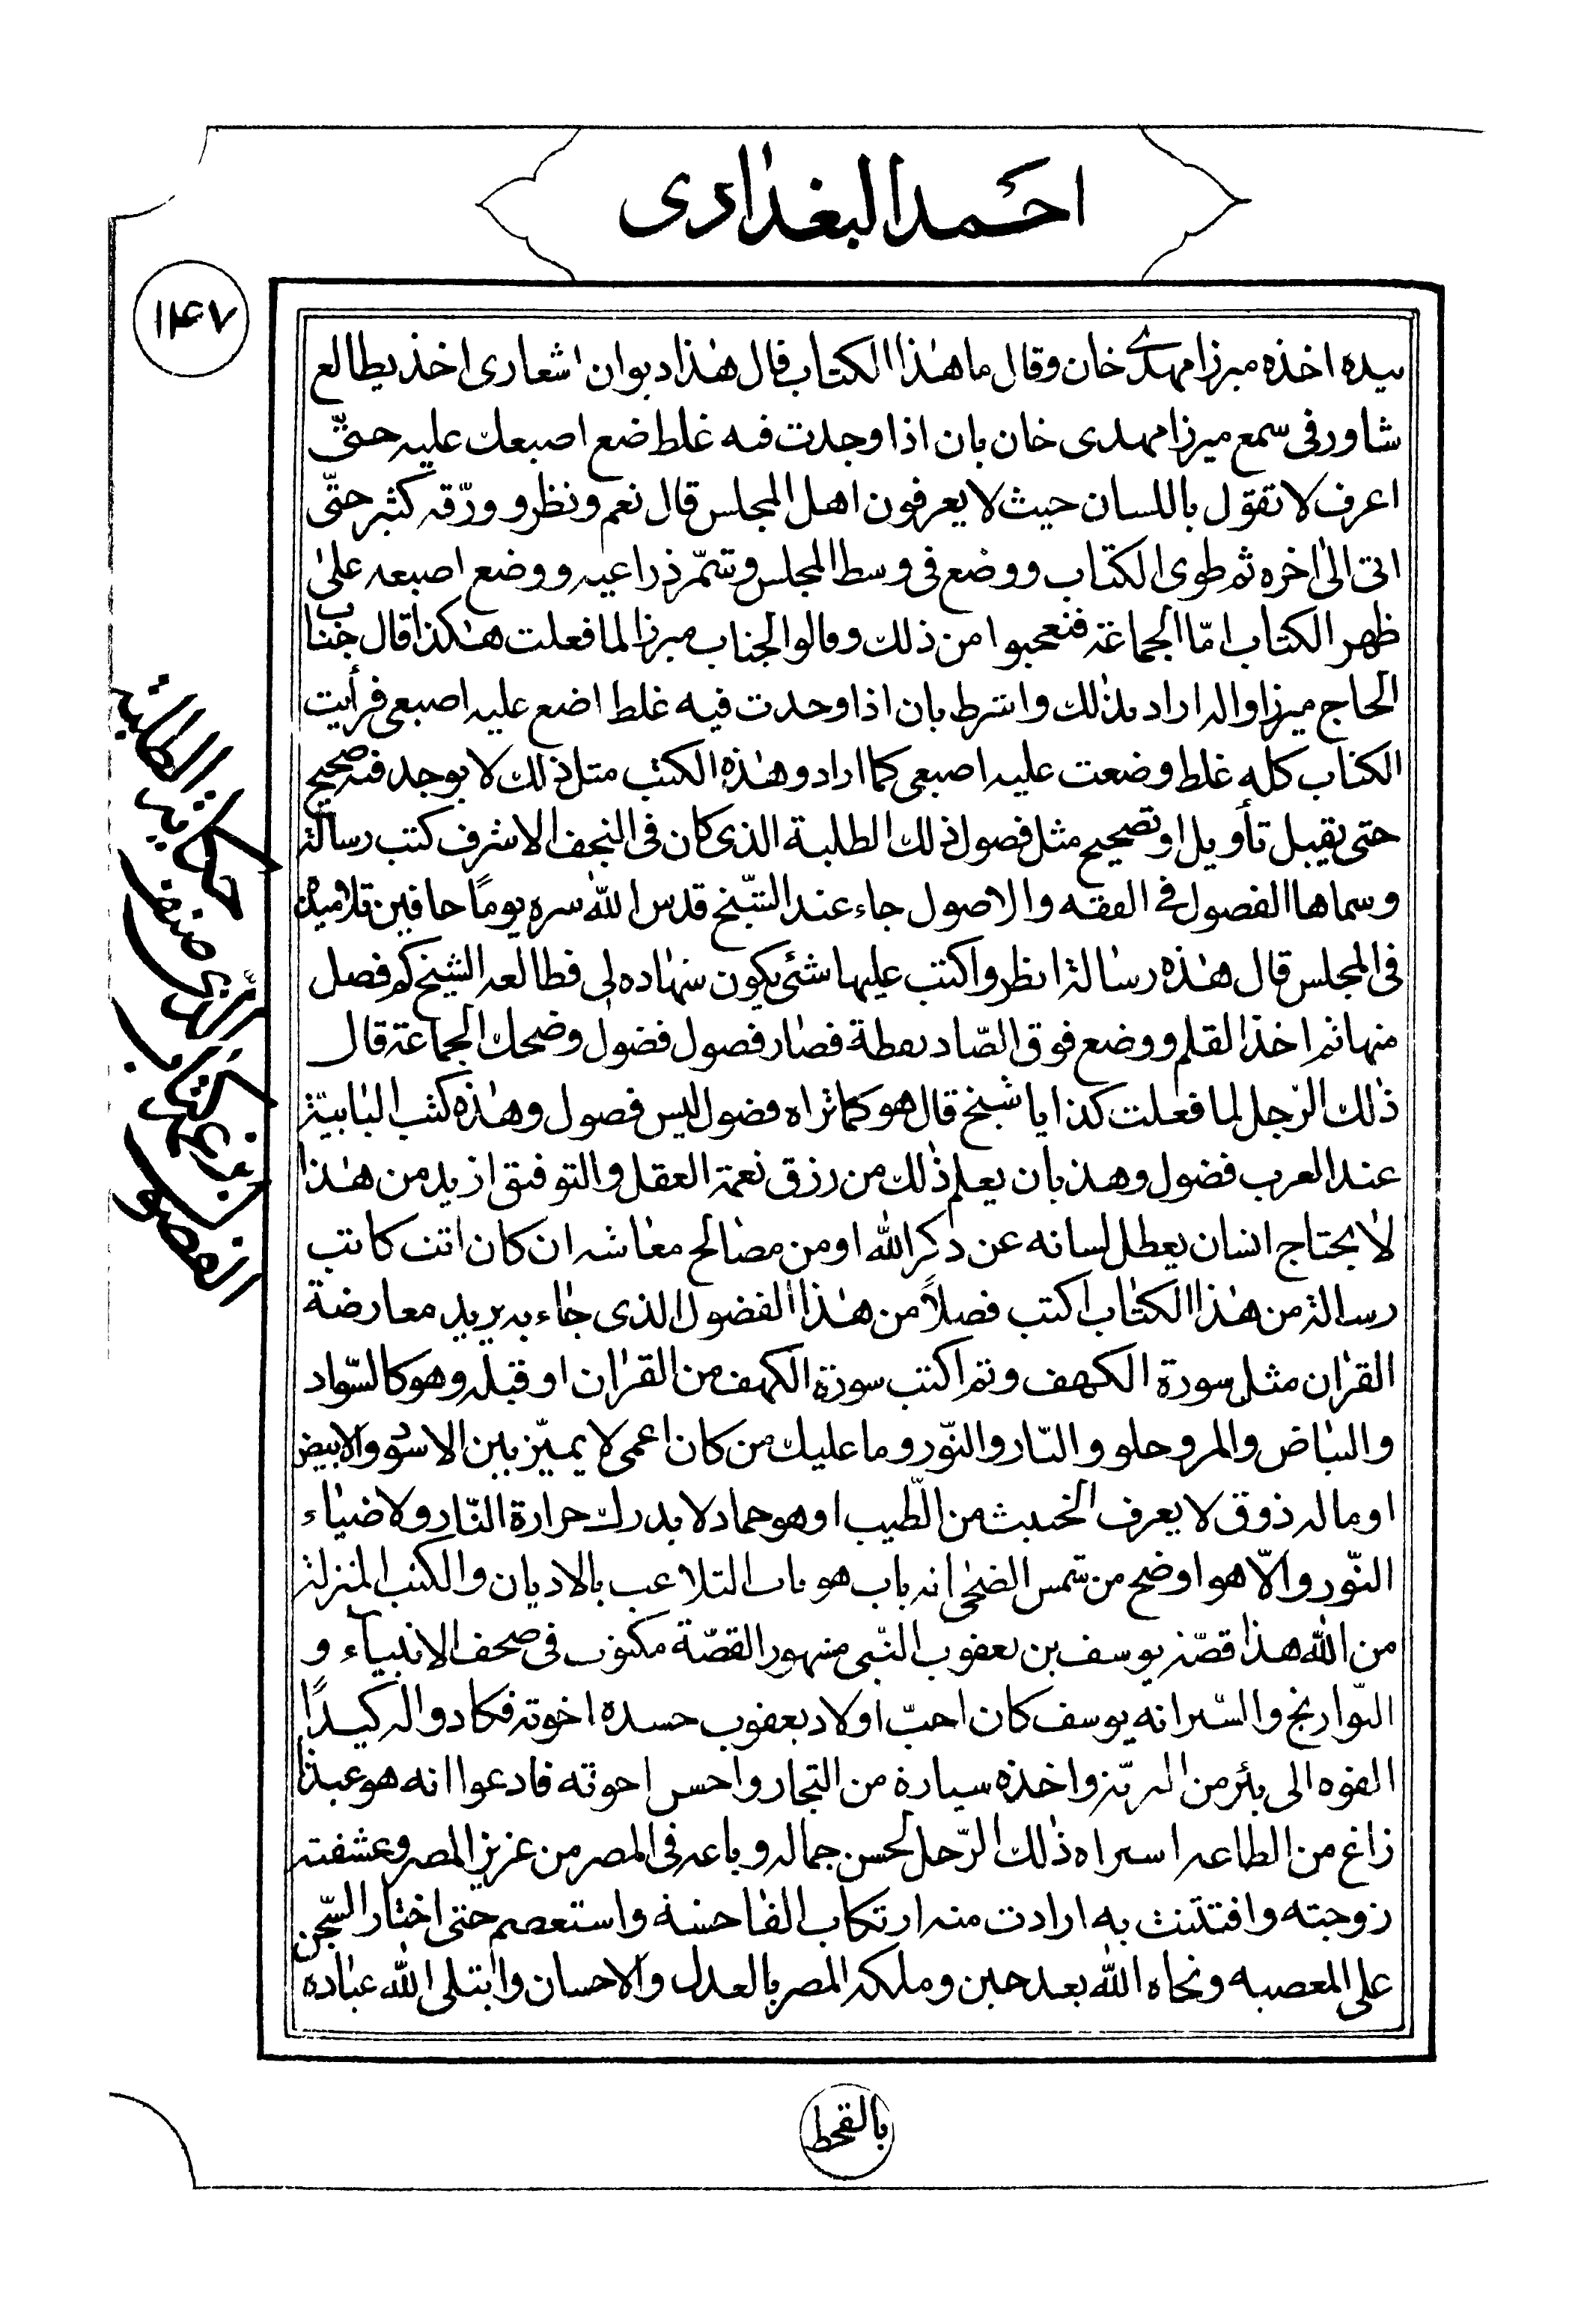 احمد البغدادی
۱۴۷
بیده اخذه میرزا مهدی خان وقال ما هذا الکتاب قال هذا دیوان اشعاری اخذ یطالع
شاور فی سمع میرزا مهدی خان بان اذا وجدت فیه غلط ضع اصبعك علیه حتیّ
اعرف لا تقول باللسان حیث لا یعرفون اهل المجلس قال نعم ونظر و ورّقه کثیر حتّی
اتی الی اخره ثم طوی الکتاب ووضع فی وسط المجلس وشمّر ذراعیه ووضع اصبعه علی
ظهر الکتاب امّا الجماعة فتعجبوا من ذلك وقالوا لجناب میرزا لما فعلت هکذا قال جناب
الحاج میرزا واله اراد بذلك واشرط بان اذا وجدت فیه غلط اضع علیه اصبعی فرأیت
الکتاب کله غلط وضعت علیه اصبعی کما اراد وهذه الکتب مثل ذلك لا یوجد فیه صحیح
حتی یقبل تأویل او تصحیح مثل فصول ذلك الطلبة الذی کان فی النجف الاشرف کتب رسالة
وسماها الفصول فی الفقه والاصول جاء عند الشیخ قدس الله سره یومًا حافین تلامیذه
فی المجلس قال هذه رسالة انظر واکتب علیها شئی یکون شهاده لی فطالعه الشیخ کم فصل
منها ثم اخذ القلم ووضع فوق الصّاد نقطة فصار فصول فضول وضحك الجماعة قال
ذلك الرّجل لما فعلت کذا یا شیخ قال هو کما تراه فضول لیس فصول وهذه کتب البابیّة
عند العرب فضول وهذبان یعلم ذلك من رزق نعمة العقل والتوفیق ازید من هذا
لا یحتاج انسان یعطل لسانه عن ذکر الله او من مصالح معاشه ان کان انت کاتب
رسالة من هذا الکتاب اکتب فصلاً من هذا الفضول الذی جاء به یرید معارضة
القران مثل سورة الکهف وثم اکتب سورة الکهف من القران او قبله وهو کالسّواد
والبیاض والمر وحلو والنّار والنّور وما علیك من کان اعمی لا یمیّز بین الاسود والابیض
او ماله ذوق لا یعرف الخبیث من الطّیب او هو جماد لا یدرك حرارة النّار ولا ضیاء
النّور والّا هو اوضح من شمس الضحی انه باب هو باب التلاعب بالادیان والکتب المنزلة
من الله هذا قصّة یوسف بن یعقوب النّبی مشهور القصّة مکتوب فی صحف الانبیآء و
التّواریخ والسّیر انه یوسف کان احبّ اولاد یعقوب حسده اخوته فکادوا له کیدًا
القوه الی بئر من البرّیة واخذه سیارة من التجار واحس اخوته فادعوا انه هو عبدنا
زاغ من الطاعه اسیراه ذلك الرّجل لحسن جماله وباعه فی المصر من عزیز المصر وعشقته
زوجته وافتتنت به ارادت منه ارتکاب الفاحشة واستعصم حتی اختار السّجن
علی المعصیه ونجاه الله بعد حین وملکه المصر بالعدل والاحسان وابتلی الله عباده
بالقحط
حکایة الطالبة
الذی صنف
الکتاب
الفصول